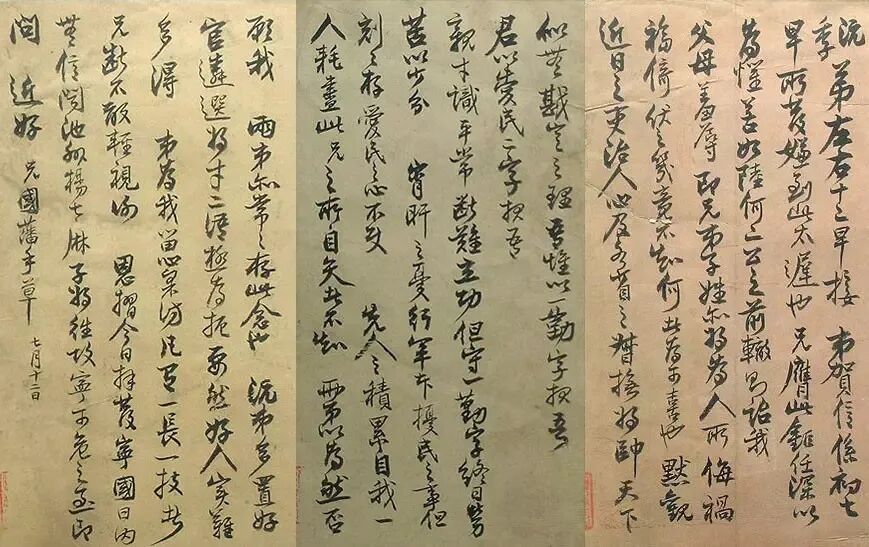 沅季弟左右十二早接 弟賀信係初七
早所發嫌到此太遲也 兄膺此鉅任深以
為懼若如陸何二公之前轍則詒我
父母羞辱即兄弟子姪亦將為人所侮禍
福倚伏之幾竟不知何者為可喜也 默觀
近日之吏治人心及各省之督撫將帥天下
似無戡定之理吾惟以一勤字報吾
君以愛民二字報吾
親才識平常斷難立功但守一勤字終日勞
苦以少分 宵旰之憂行軍本擾民之事但
刻刻存愛民之心不使 先人之積累自我一
人耗盡此兄之所自矢者不知 兩弟以為然否
願我 兩弟亦常常存此念也 沅弟多置好
官遴選將才二語極為扼要然好人實難
多得 弟為我留心采訪凡有一長一技者
兄斷不敢輕視謝 恩摺今日拜發寧國日內
無信聞池州楊七麻子將往攻寧可危之至即
問近好 兄國藩手草 七月十二日